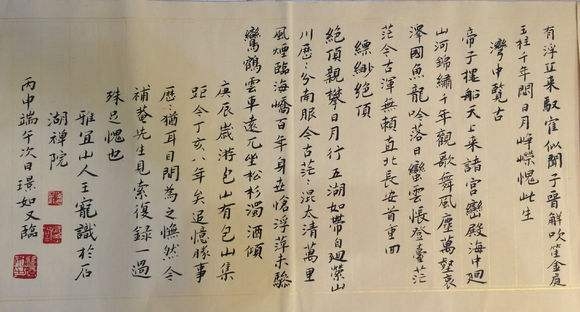 有浮丘來馭寉似聞子晉解吹笙金庭
玉柱千年閟日月崢嶸愧此生
灣中覽古
帝子樓船天上來諸宮巒殿海中迴
山河錦繡千年觀歌舞風塵萬壑哀
澤國魚龍吟落日蠻雲悵登臺茫
茫今古渾無賴直北長安首重回
縹緲絕頂
絕頂親攀日月行五湖如帶自迴縈山
川歷〻分南服今古茫〻混太清萬里
風煙臨海嶠百年身世愴浮萍未驂
鸞鶴雲車遠兀坐松杉濁酒傾
庚辰歲游包山有包山集
距今丁亥八年矣追憶勝事
歷〻猶耳目間為之憮然今
補菴先生見索復錄一過
殊愧也
雅宜山人王寵識於石
湖禪院
丙申端午次日璟如又臨